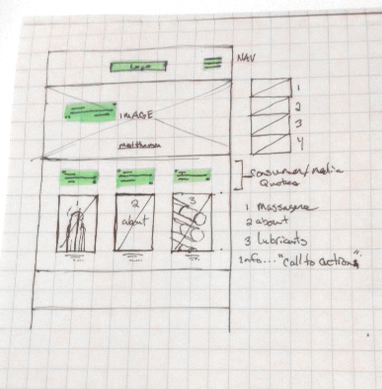 Logo
NAV
IMAGE
1
2
3
4
Consumer/Media
Quotes
2
about
3
1 Massagers
2 about
3 Lubricants
Info... "Call to actions"